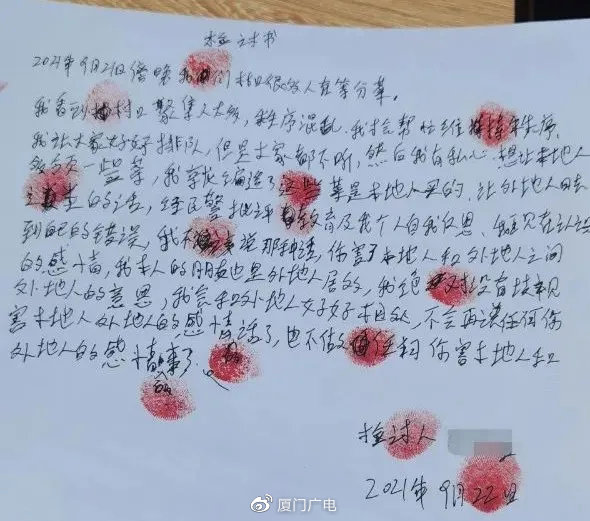 检讨书
2021年9月21日傍晚我们村口很多人在等分菜。
我看到村口聚集人太多，秩序混乱，我518帮忙维持秩序，
我让大家好好排队，但是大家都不听，然后我有私心，想让本地人
多点一些菜，我就编造了这些菜是本地人买的，让外地人回去
的话，经民警批评教育及我个人自我反思，我现在认识
到自己的错误，我不该说那种话，伤害了本地人和外地人之间
的感情，我本人的朋友也是外地人居多，我绝对没有歧视
外地人的意思，我会和外地人好好相处，不会再说任何伤
害本地人外地人的感情的话了，也不做任何伤害本地人和
外地人的感情的事了。
检讨人
2021年9月22日
厦门广电